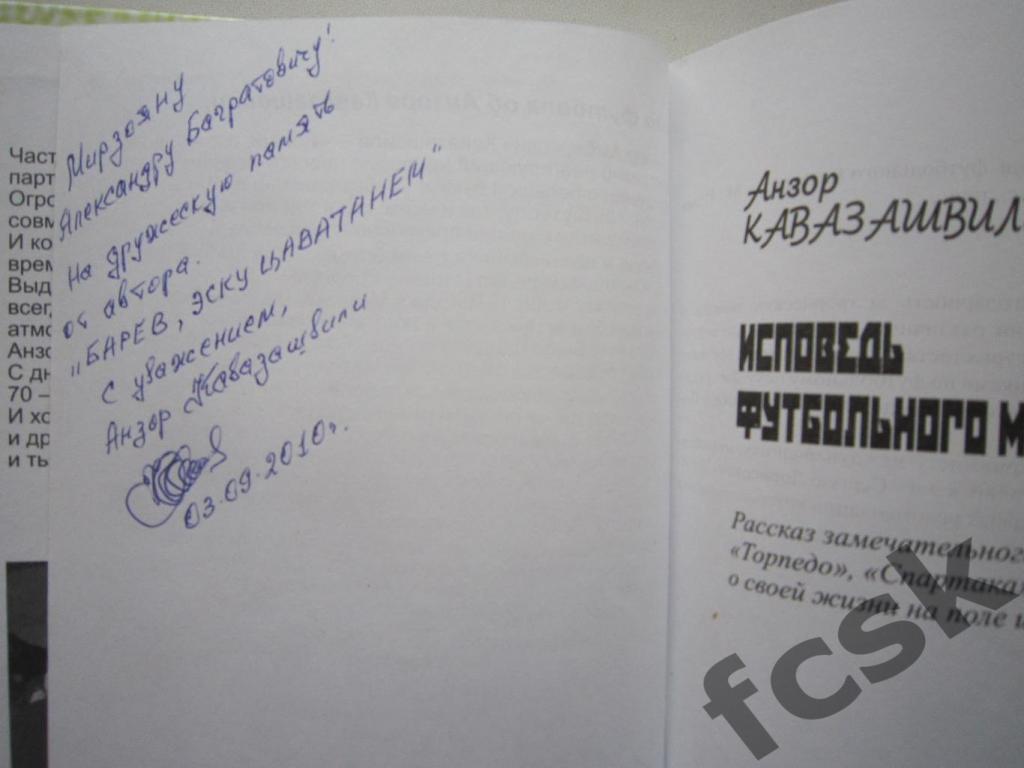 Мирзояну
Александру Багратовичу!
на дружескую память
от автора.
"БАРЕВ, ЭСКУ ЦАВАТАНЕМ"
с уважением,
Анзор Кавазашвили
03.09.2010г.
Част
парт
Огро
совм
И ко
врем
Выд
всег,
атмо
Анзо
С дн
70 –
И хо
и др
и ты
Анзор
КАВАЗАШВИЛ
ИСПОВЕДЬ
ФУТБОЛЬНОГО М
Рассказ замечательног
«Торпедо», «Спартака»
о своей жизни на поле и
fcsk